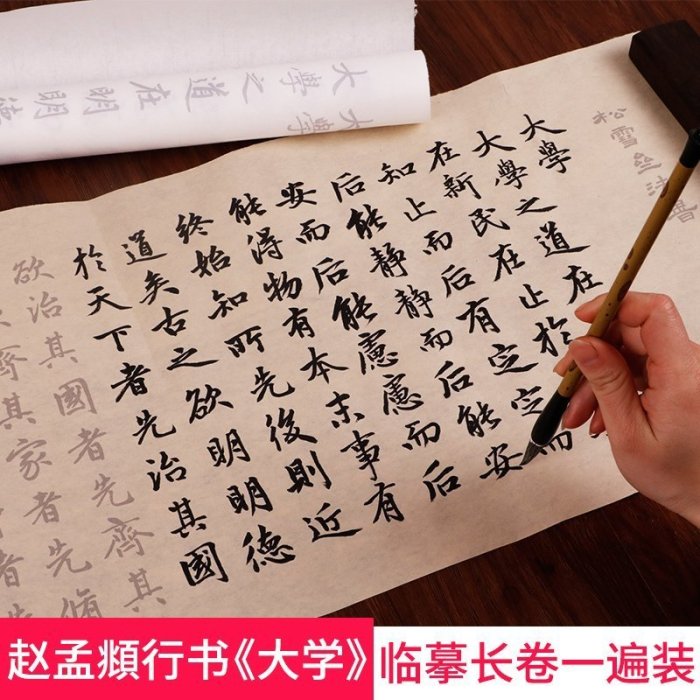 大學之道在明明
大學
松雪
大學
大學之道在
在新民在止於
知止而后有定定而
后能靜靜而后能安
安而后能慮慮而后
能得物有本末事有
終始知所先後則近
道矣古之欲明明德
於天下者先治其國
欲治其國者先齊其
齊其家者先脩
赵孟頫行书《大学》
临摹长卷一遍装